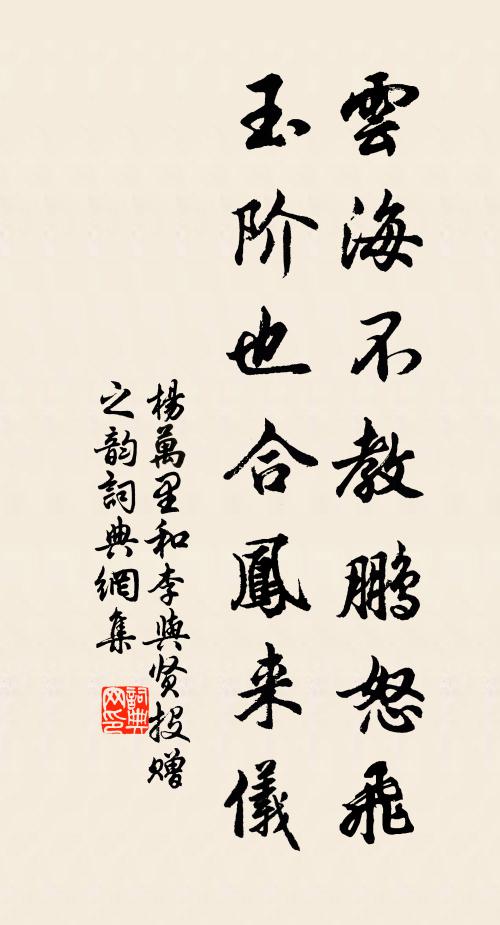 雲海不教鵬怒飛
玉阶也合鳳来儀
楊萬里和李與贤投赠
之韵詞典網集
詞典网印